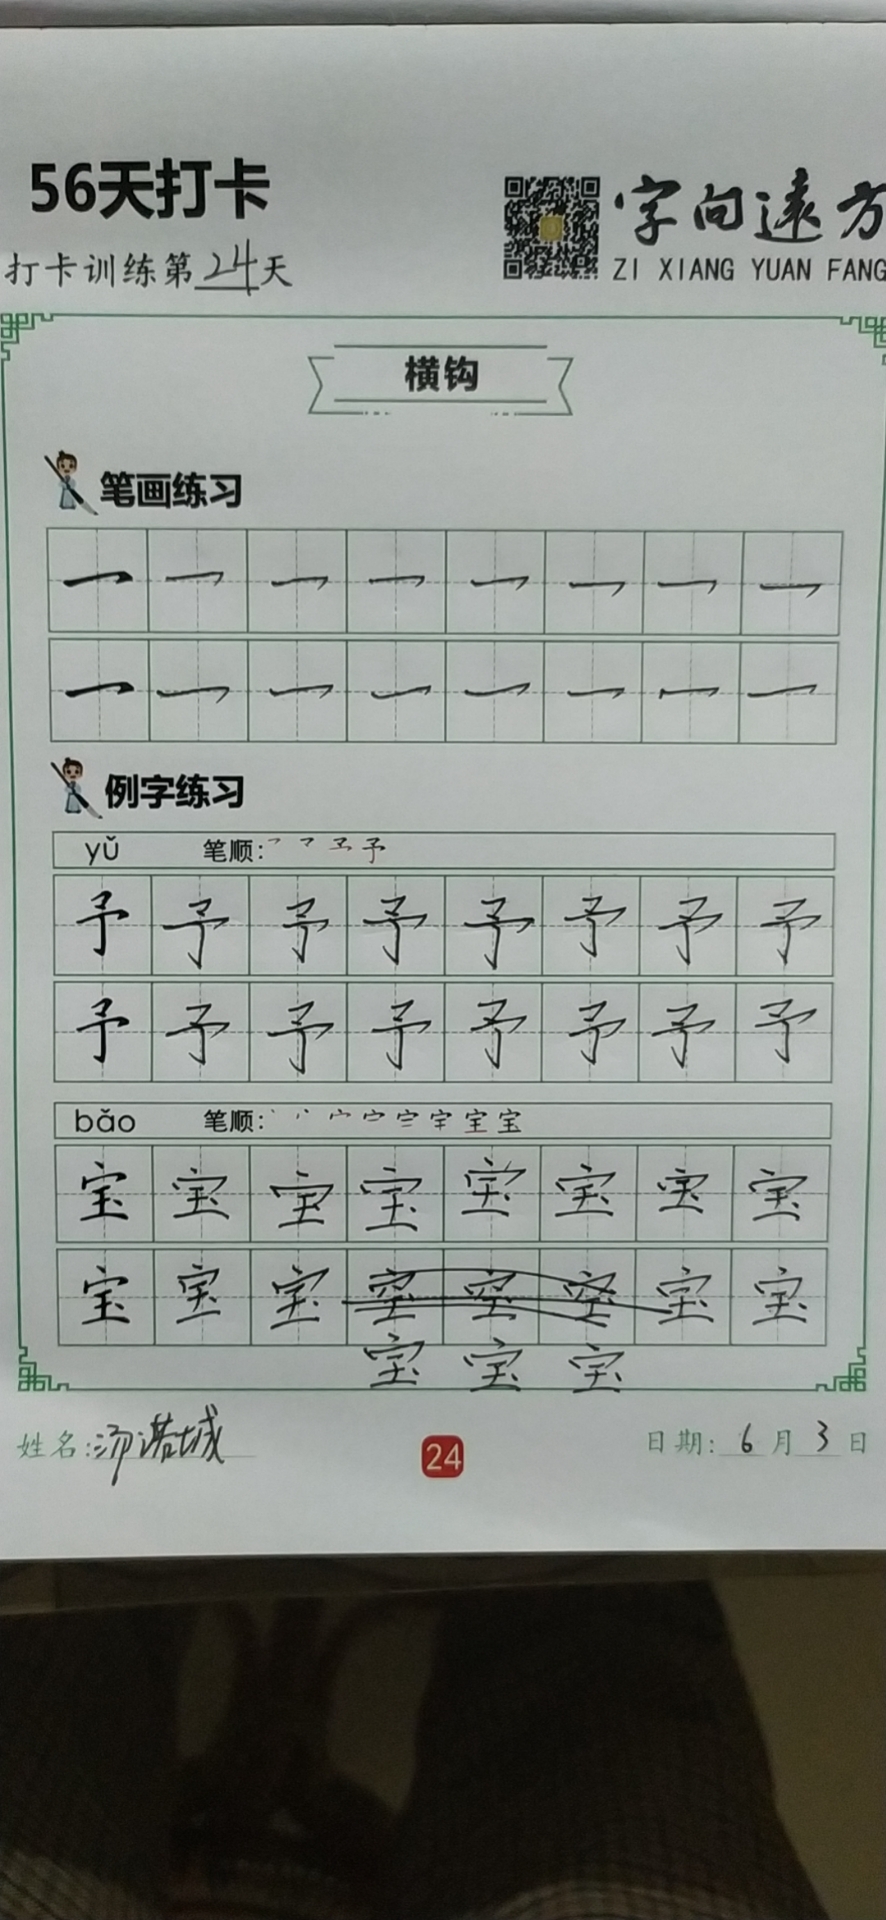 56天打卡
字向遠方
打卡训练第24天
ZI XIANG YUAN FANG
横钩
笔画练习
例字练习
yǔ 笔顺:
予 予 予 予 予 予 予 予
予 予 予 予 予 予 予 予
bǎo 笔顺:
宝 宝 宝 宝 宝 宝 宝 宝
宝 宝 宝 空 空 空 宝 宝
宝 宝 宝
姓名:汤诺城
24
日期: 6 月 3 日